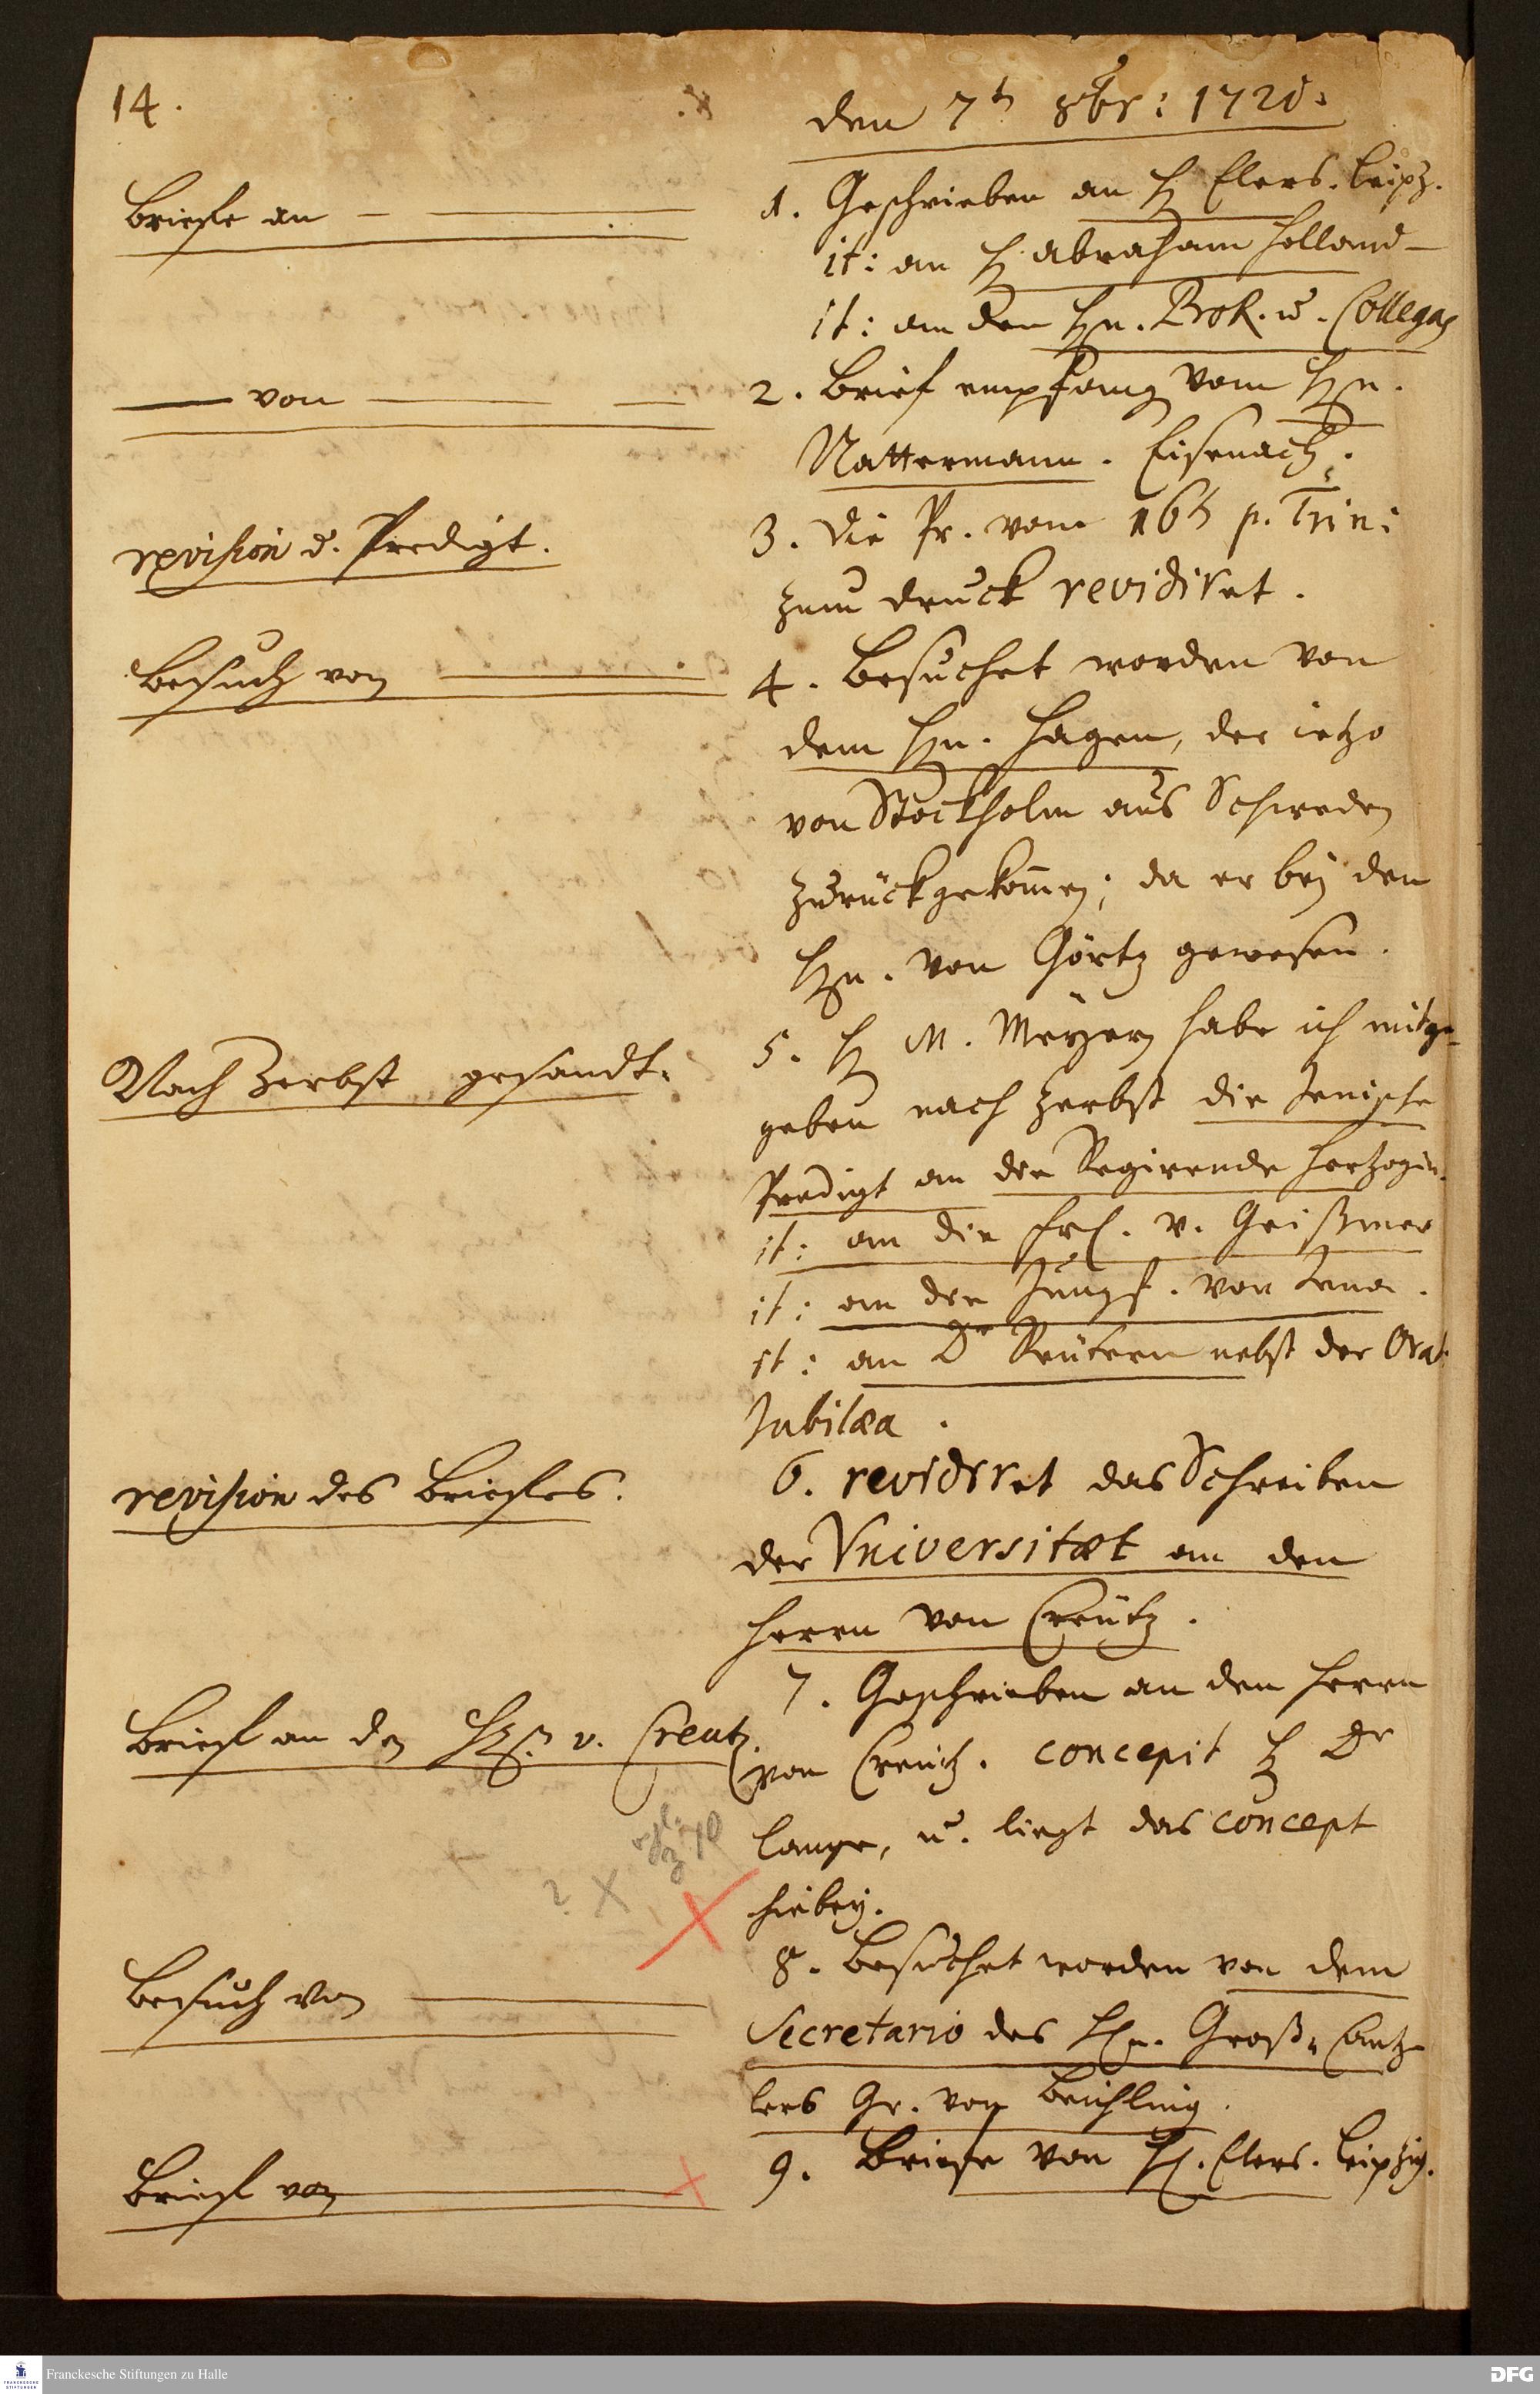 14.
den 7t 8br: 1720.
Briefe an
1. Geschrieben an H Elers. Leipz.
it: an H Abraham Holland
it: an den HEn. Collegas
— von —
2. Brief empfang vom HEn.
Nattermann. Eisenach.
revision d. Predigt.
3. Die Pr. vom 16ten p. Trin:
zum druck revidiret.
Besuch von
4. Besuchet worden von
dem HEn. Hagen, der ietzo
von Stockholm aus Schweden
zurückgekommen; da er bey den
HEn. von Görtz gewesen.
Nach Zerbst gesandt.
5. H M. Meyern habe ich mitge-
geben nach Zerbst die Jenische
Predigt an die Regirende Hertzogin.
it: an die Frl. v. Geißmer
it: an die Jungf. von Jena.
it: an Dr nebst der Orat.
Jubilæa.
revision des Briefes.
6. revidiret das Schreiben
der Vniversitæt an den
Herrn von Creütz.
Brief an den v. Creutz.
7. Geschrieben an den Herrn
von Creutz. concepit H Dr
Lange, u. liegt das concept
hiebey.
Besuch von
8. Besuchet worden von dem
Secretario des HEn. Groß-Cantz-
lers Gr. von Beichling.
Brief von
9. Briefe von H. Elers. Leipzig.
Franckesche Stiftungen zu Halle
DFG